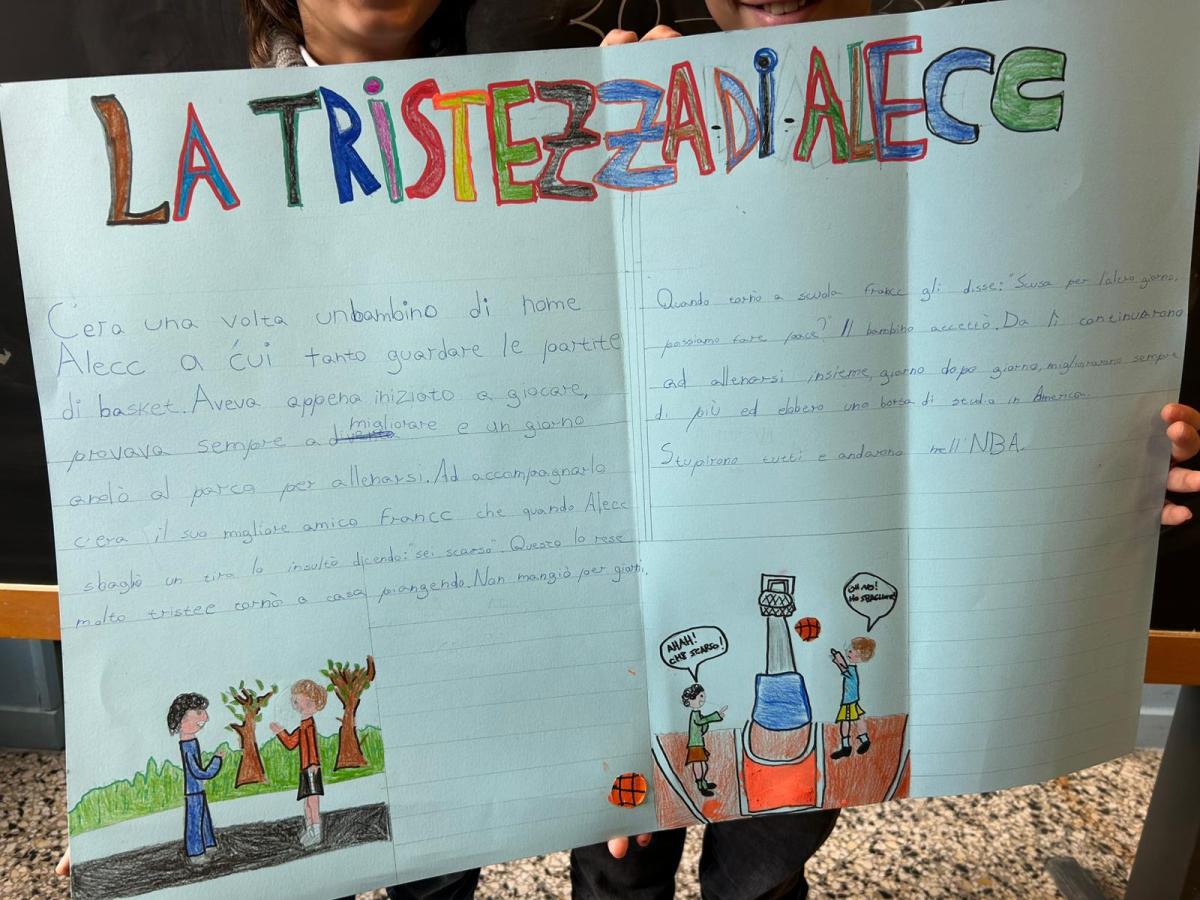 LA TRISTEZZA-DI-ALECC
C'era una volta unbambino di nome
Alecc a cui tanto guardare le partite
di basket. Aveva appena iniziato a giocare,
provava sempre a migliorare e un giorno
andò al parco per allenarsi. Ad accompagnarlo
c'era il suo migliore amico Francc che quando Alecc
sbagliò un tiro lo insultò dicendo: "sei scarso". Questo lo rese
molto tristee tornò a casa piangendo. Non mangiò per giorni.
Quando tornò a scuola Francc gli disse: "Scusa per l'altro giorno,
possiamo fare pace?" Il bambino accettò. Da lì continuarono
ad allenarsi insieme, giorno dopo giorno, migliorarono sempre
di più ed ebbero una borsa di studio in America.
Stupirono tutti e andarono nell'NBA.
AHAH!
CHE SCARSO!
OH NO!
HO SBAGLIATO